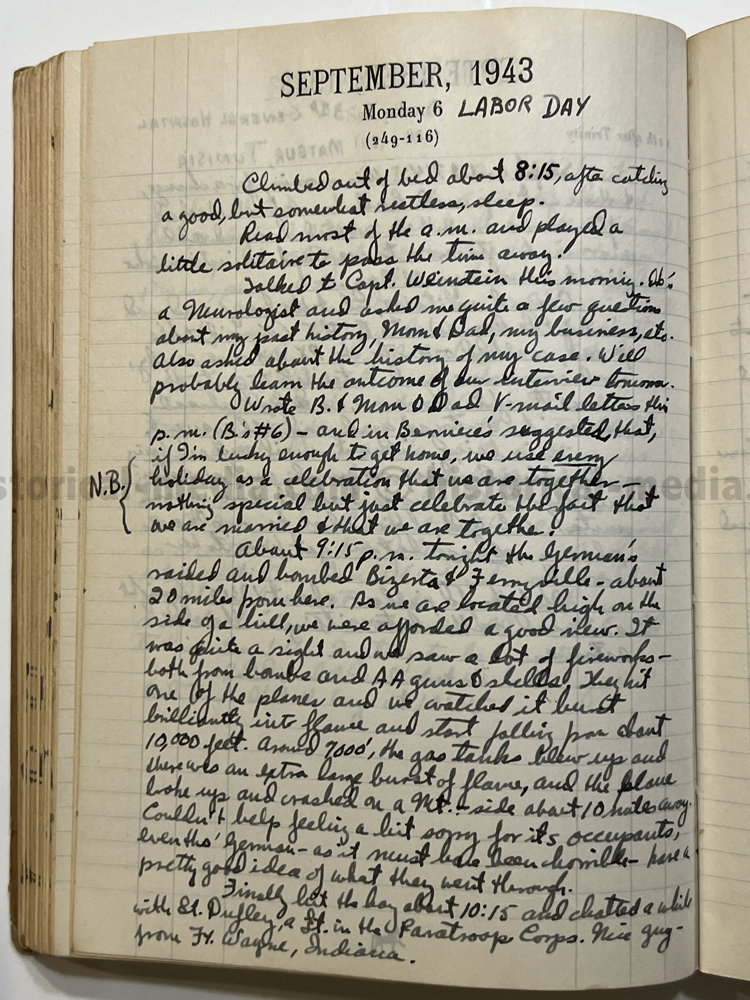 SEPTEMBER, 1943
Monday 6 LABOR DAY
(249-116)
Climbed out of bed about 8:15, after catching
a good, but somewhat restless, sleep.
Read most of the a.m. and played a
little solitaire to pass the time away.
Talked to Capt. Weinstein this morning.
a Neurologist and asked me quite a few questions
about my past history, Mom & Dad, my business, etc.
Also asked about the history of my case. Will
probably learn the outcome of our interview tomorrow.
Wrote B. & Mom & Dad V-mail letters this
p.m. (B's #6) – and in Bernice's suggested, that,
if I'm lucky enough to get home, we use every
N.B. { holiday as a celebration that we are together –
nothing special but just celebrate the fact that
we are married & that we are together.
About 9:15 p.m. tonight the German's
raided and bombed Bizerta & Ferryville – about
20 miles from here. As we are located high on the
side of a hill, we were afforded a good view. It
was quite a sight and we saw a lot of fireworks –
both from bombs and AA guns & shells. They hit
one of the planes and we watched it burst
brilliantly into flame and start falling from about
10,000 feet. Around 7000', the gas tanks blew up and
there was an extra large burst of flame, and the plane
broke up and crashed on a Mt. – side about 10 miles away.
Couldn't help feeling a bit sorry for its occupants,
even tho' German – as it must have been horrible – have a
pretty good idea of what they went through.
Finally hit the hay about 10:15 and chatted a while
with Lt. a Lt. in the Paratroop Corps. Nice guy –
from Ft. Wayne, Indiana.